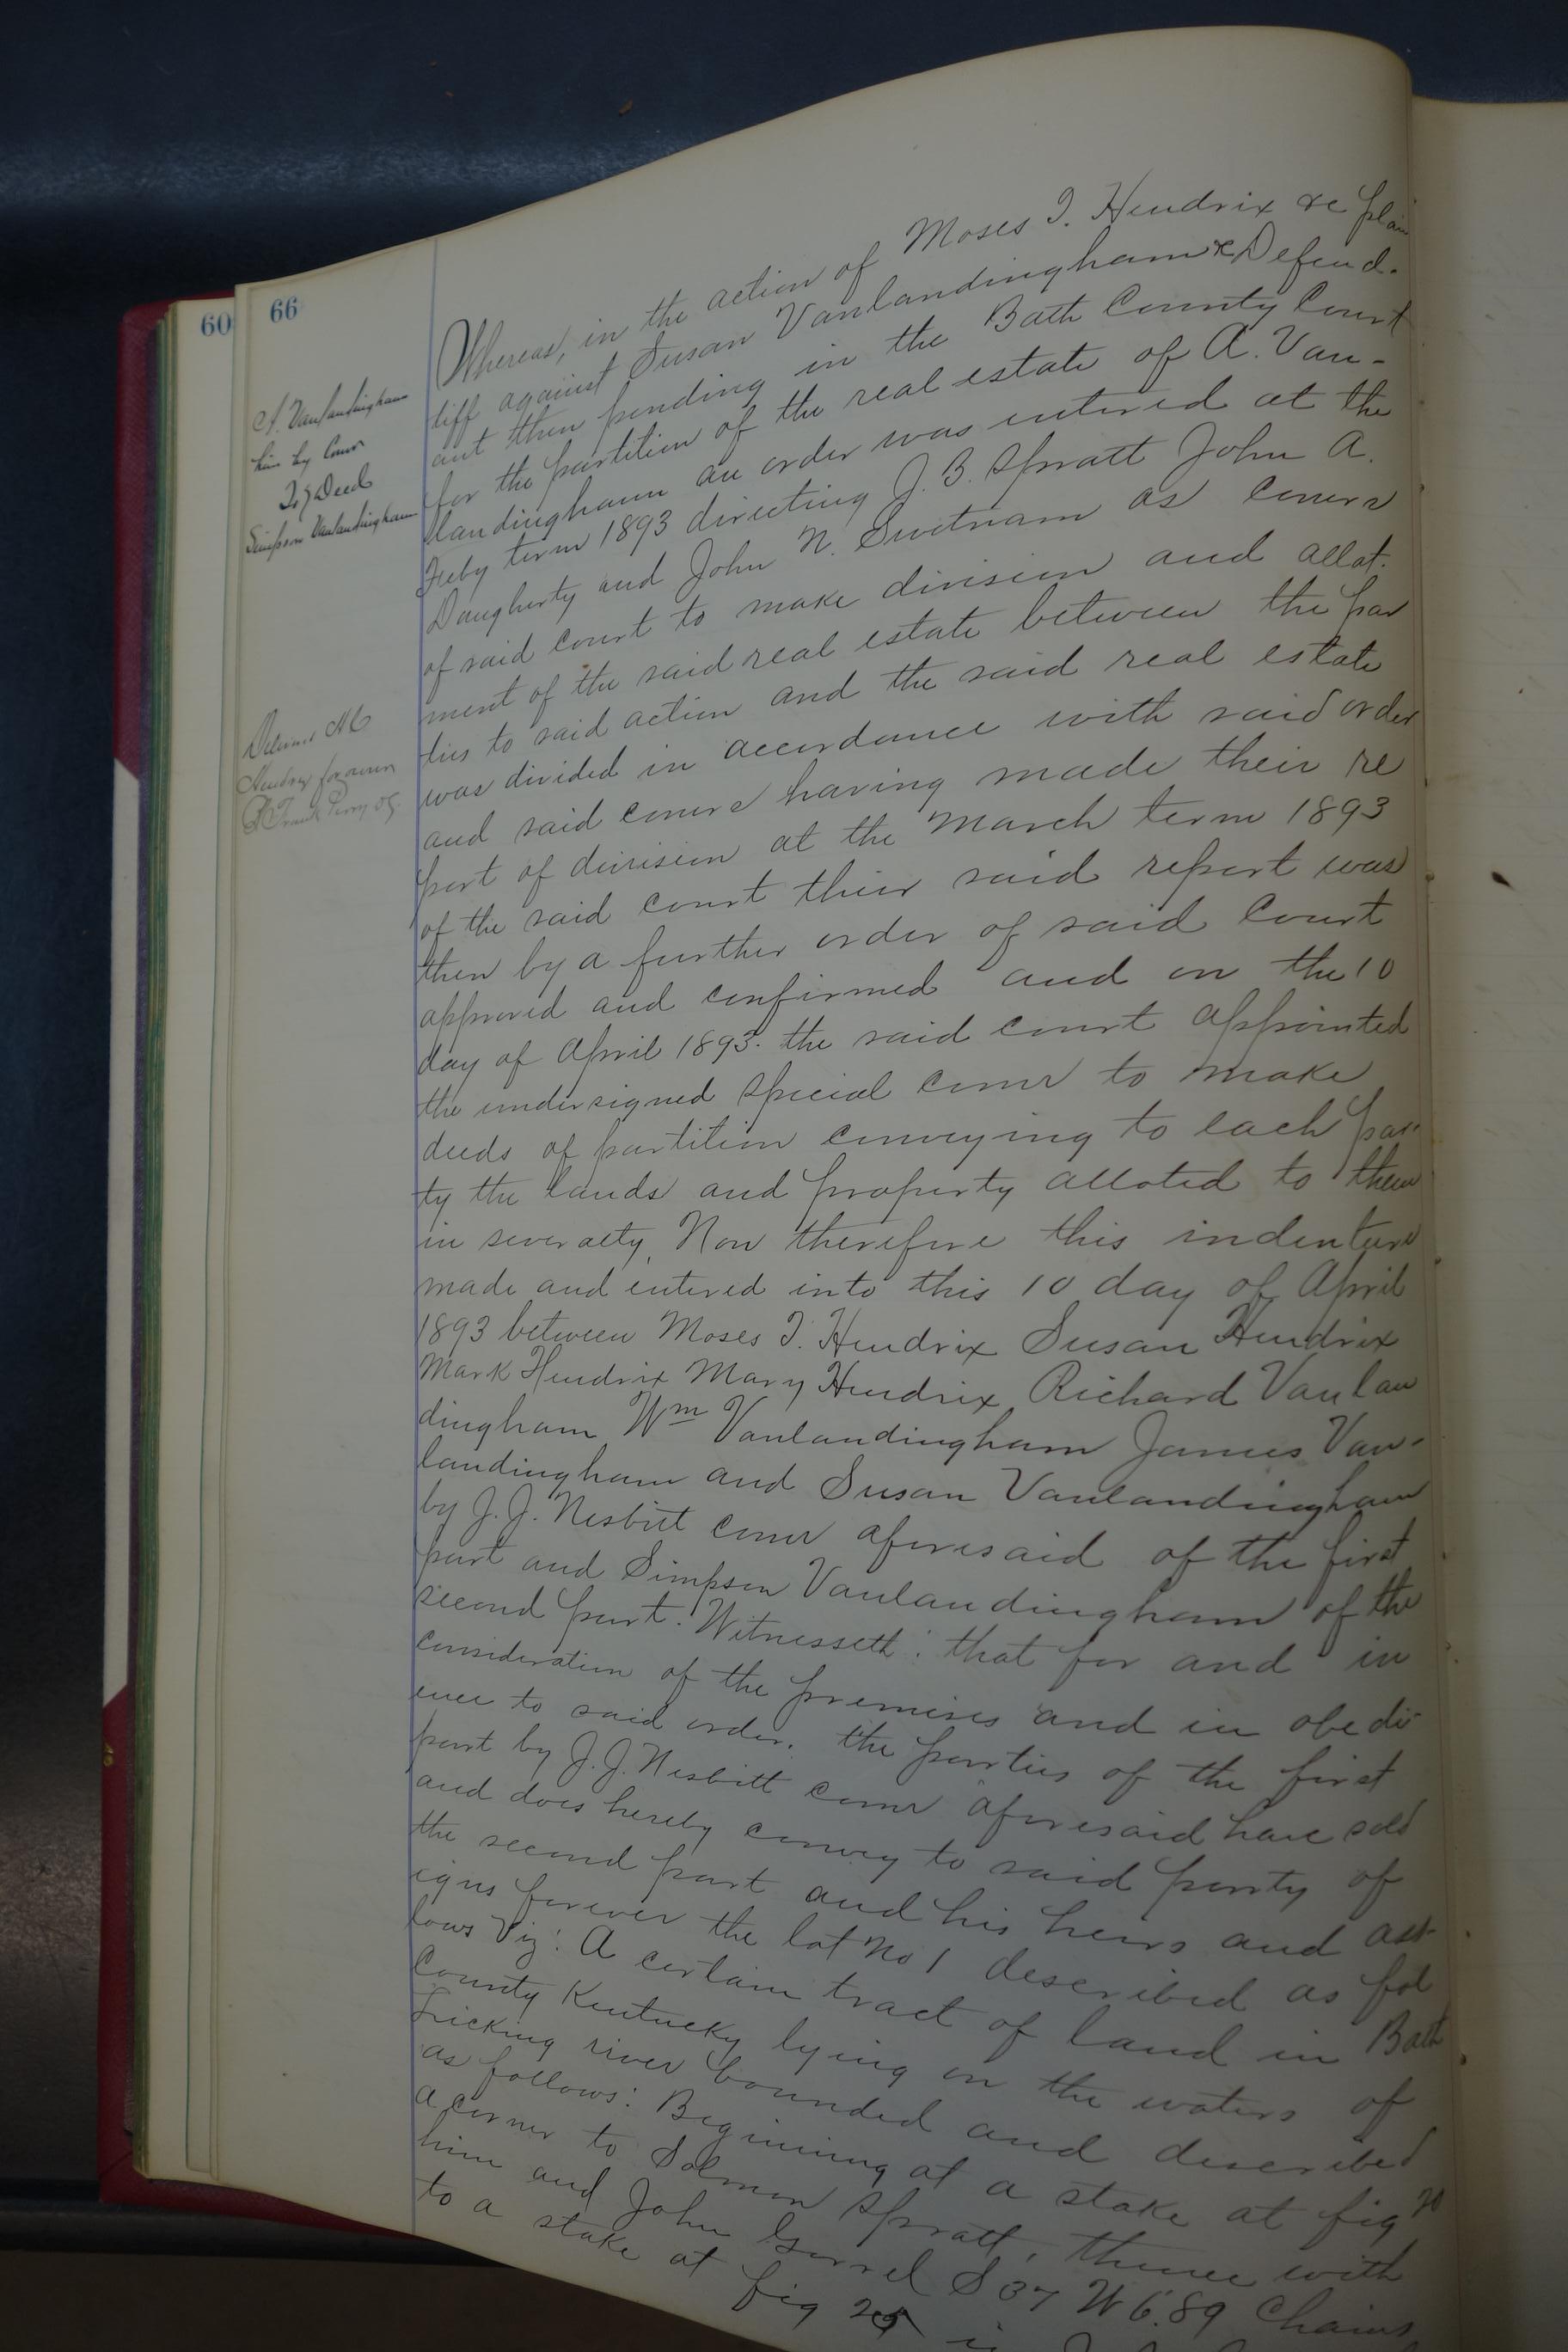 60
66
A. Vanlandingham
him by Comr
To } Deed
Simpson Vanlandingham
Whereas, in the action of Moses T. Hendrix &c plain
tiff against Susan Vanlandingham &c Defend-
ant then pending in the Bath County Court
for the partition of the real estate of A. Van-
landingham an order was entered at the
Feby term 1893 directing J. B. Spratt John A.
Daugherty and John N. Swetnam as comrs
of said court to make division and allot-
ment of the said real estate between the par
ties to said action and the said real estate
was divided in accordance with said order
and said comrs having made their re
port of division at the March term 1893
of the said court their said report was
then by a further order of said Court
approved and confirmed and on the 10
day of April 1893. the said court appointed
the undersigned special comr to make
deeds of partition conveying to each par-
ty the lands and property alloted to them
in severalty. Now therefore this indenture
made and entered into this 10 day of April
1893 between Moses T. Hendrix Susan Hendrix
Mark Hendrix Mary Hendrix Richard Vanlan
dingham Wm Vanlandingham James Van-
landingham and Susan Vanlandingham
by J. J. Nesbitt comr aforesaid of the first
part and Simpson Vanlandingham of the
second part. Witnesseth: that for and in
consideration of the premises and in obedi-
ence to said order. the parties of the first
part by J. J. Nesbitt comr aforesaid have sold
and does hereby convey to said party of
the second part and his heirs and ass-
igns forever the lot No 1 described as fol
lows Viz: A certain tract of land in Bath
County Kentucky lying on the waters of
Licking river bounded and described
as follows: Beginning at a stake at fig 20
a corner to Solmon Spratt, thence with
him and John Gorrel S 37 W 6.89 Chains
to a stake at fig 25 in
Delivered
Hendrix for
Frank Perry